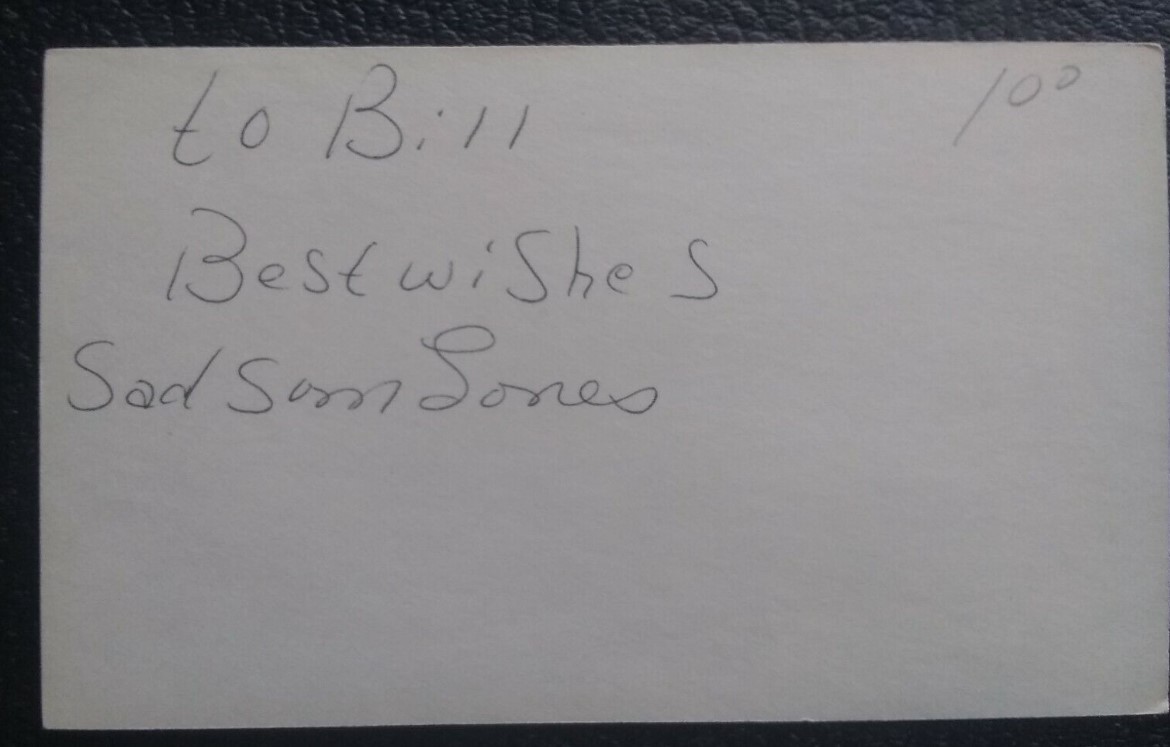 to Bill
100
Best wishes
Sad Sam Jones